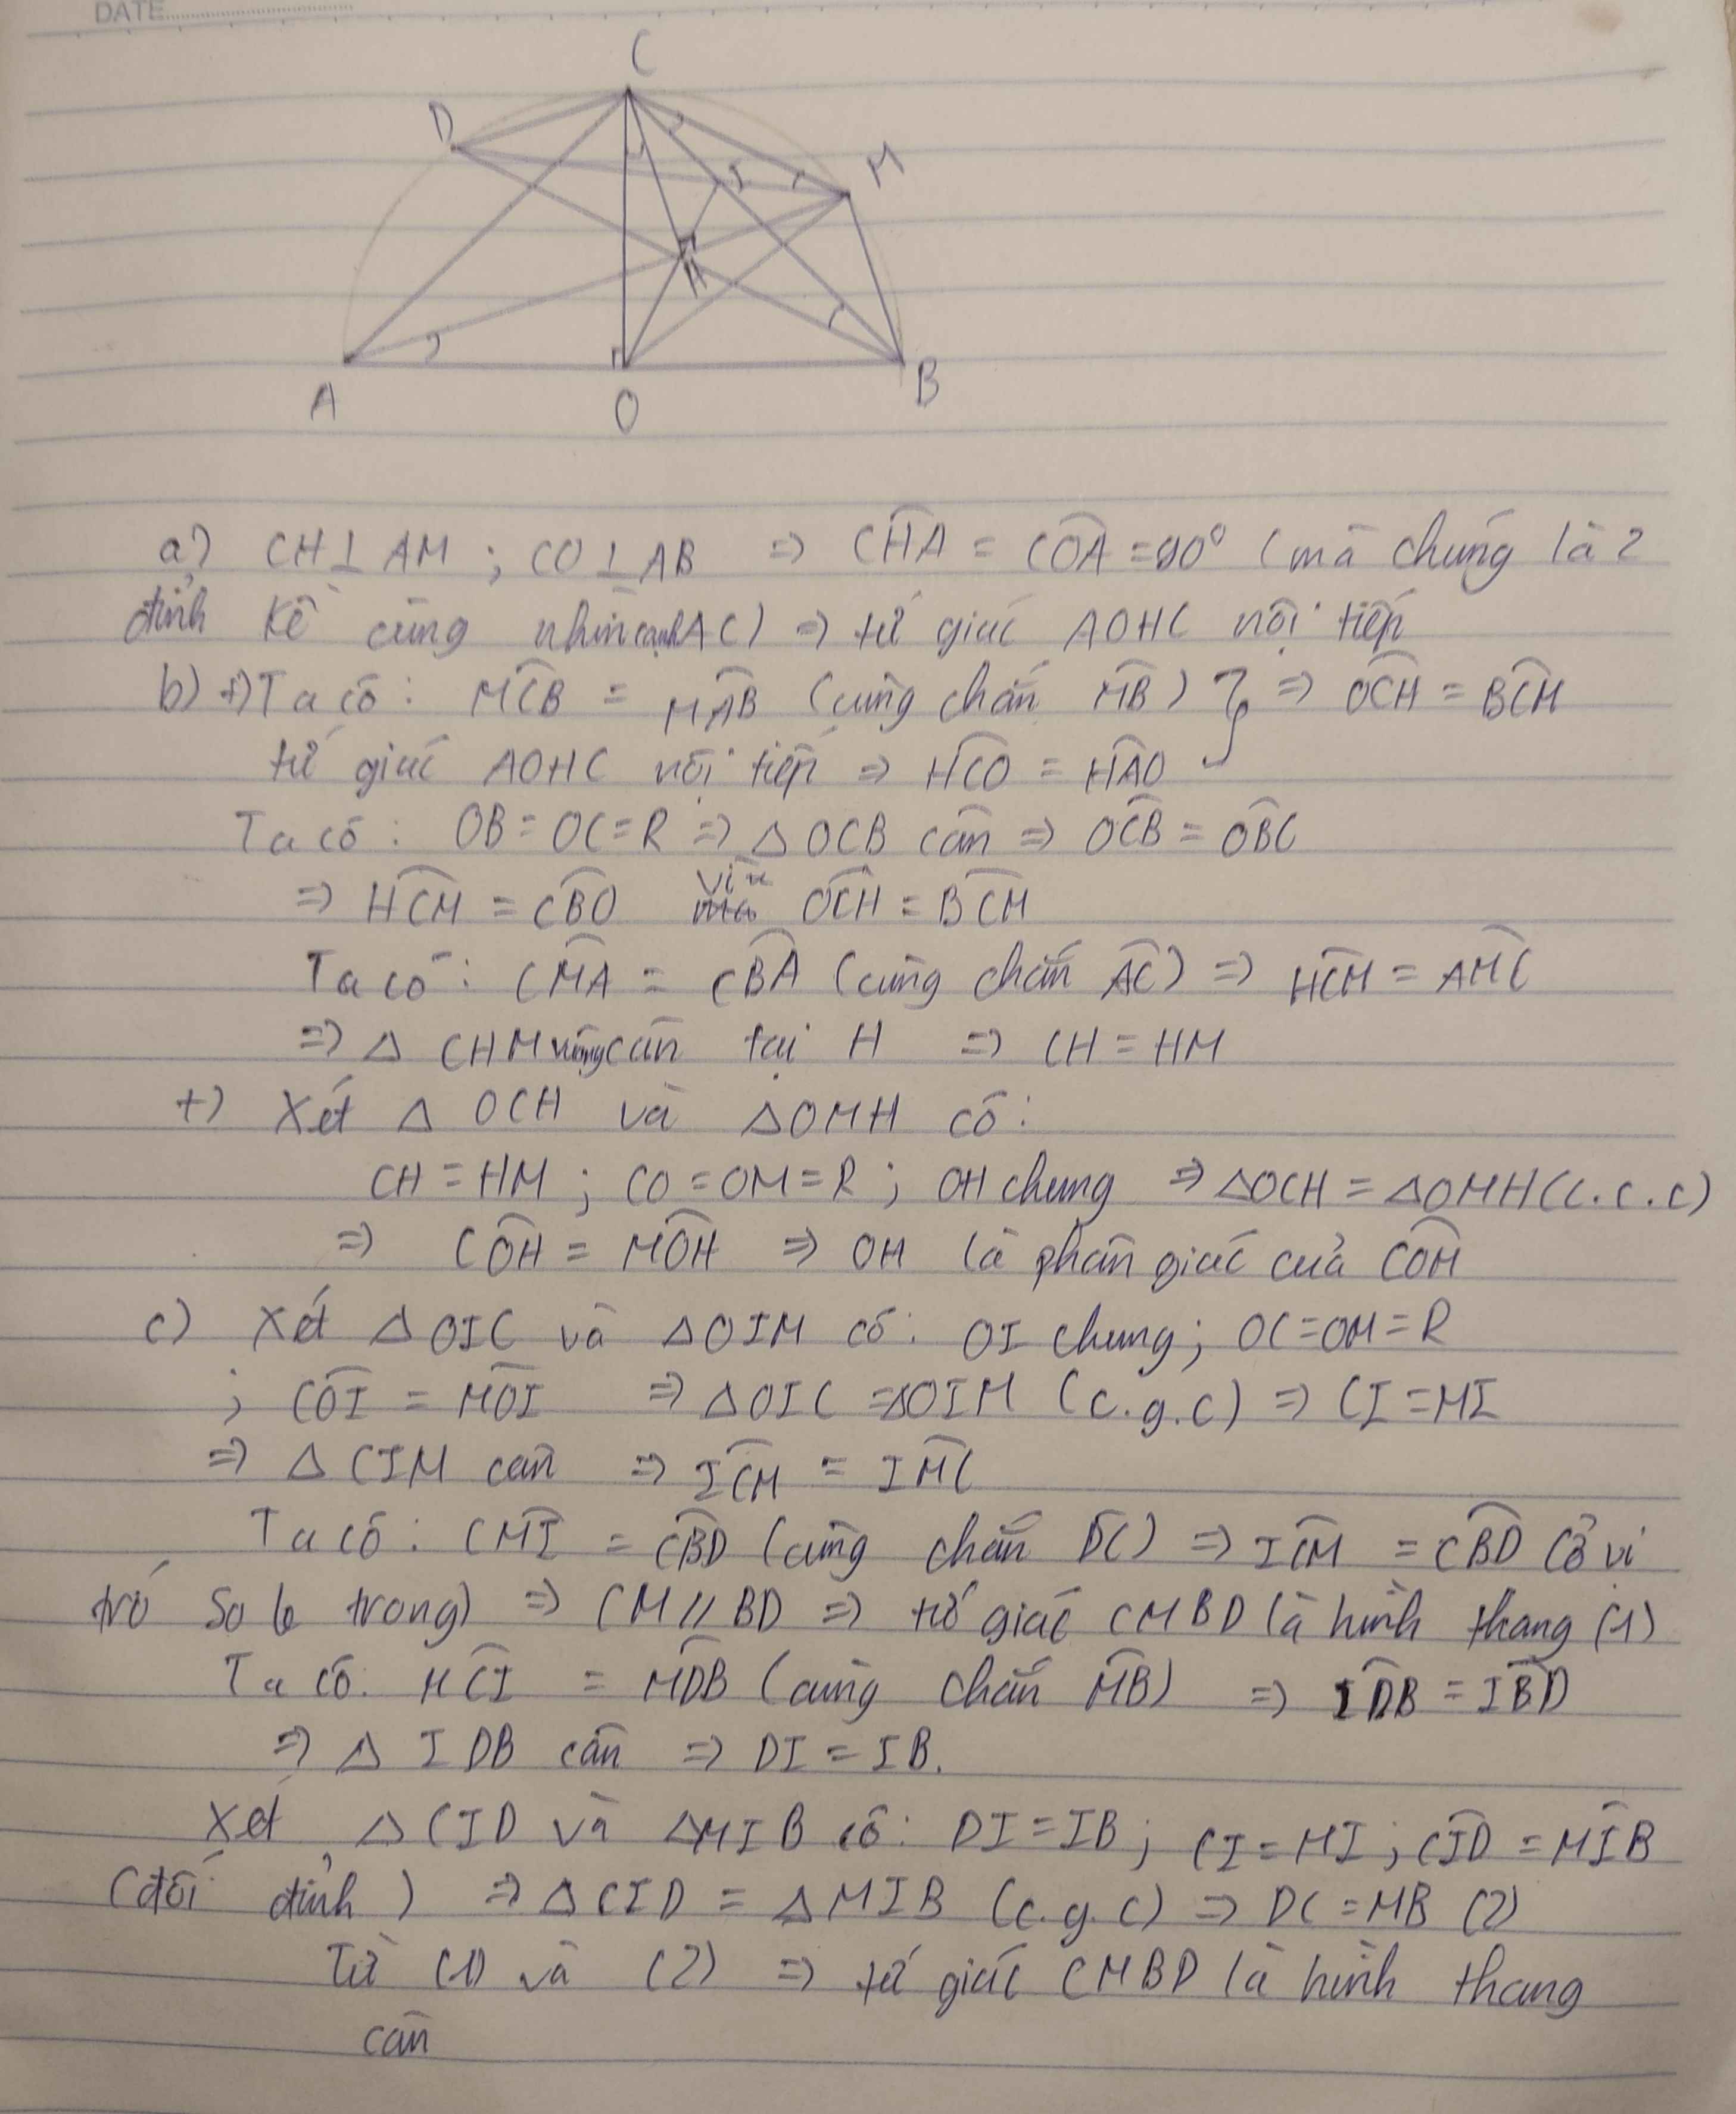 DATE
C
D
M
I
H
A
O
B
a) CH ⊥ AM ; CO ⊥ AB => \widehat{CHA} = \widehat{COA} = 90° (mà chúng là 2
đỉnh kề cùng nhìn cạnh AC) => tứ giác AOHC nội tiếp
b) +) Ta có: \widehat{MCB} = \widehat{MAB} (cùng chắn \widehat{MB}) } => \widehat{OCH} = \widehat{BCM}
tứ giác AOHC nội tiếp => \widehat{HCO} = \widehat{HAO}
Ta có: OB = OC = R => △ OCB cân => \widehat{OCB} = \widehat{OBC}
=> \widehat{HCM} = \widehat{CBO} vì \widehat{OCH} = \widehat{BCM}
Ta có: \widehat{CMA} = \widehat{CBA} (cùng chắn \widehat{AC}) => \widehat{HCM} = \widehat{AMC}
=> △ CHM vuông cân tại H => CH = HM
+) Xét △ OCH và △OMH có:
CH = HM ; CO = OM = R ; OH chung => △OCH = △OMH (c.c.c)
=> \widehat{COH} = \widehat{MOH} => OH là phân giác của \widehat{COM}
c) Xét △OIC và △OIM có: OI chung; OC=OM=R
; \widehat{COI} = \widehat{MOI} => △OIC =△OIM (c.g.c) => CI = MI
=> △ CIM cân => \widehat{ICM} = \widehat{IMC}
Ta có: \widehat{CMI} = \widehat{CBD} (cùng chắn \widehat{DC}) => \widehat{ICM} = \widehat{CBD} (ở vị
trí so le trong) => CM // BD => tứ giác CMBD là hình thang (1)
Ta có: \widehat{MCI} = \widehat{MDB} (cùng chắn \widehat{MB}) => \widehat{IDB} = \widehat{IBD}
=> △ IDB cân => DI = IB.
Xét △ CID và △MIB có: DI = IB; CI = MI; \widehat{CID} = \widehat{MIB}
(đối đỉnh) => △ CID = △ MIB (c.g.c) => DC = MB (2)
Từ (1) và (2) => tứ giác CMBD là hình thang
cân